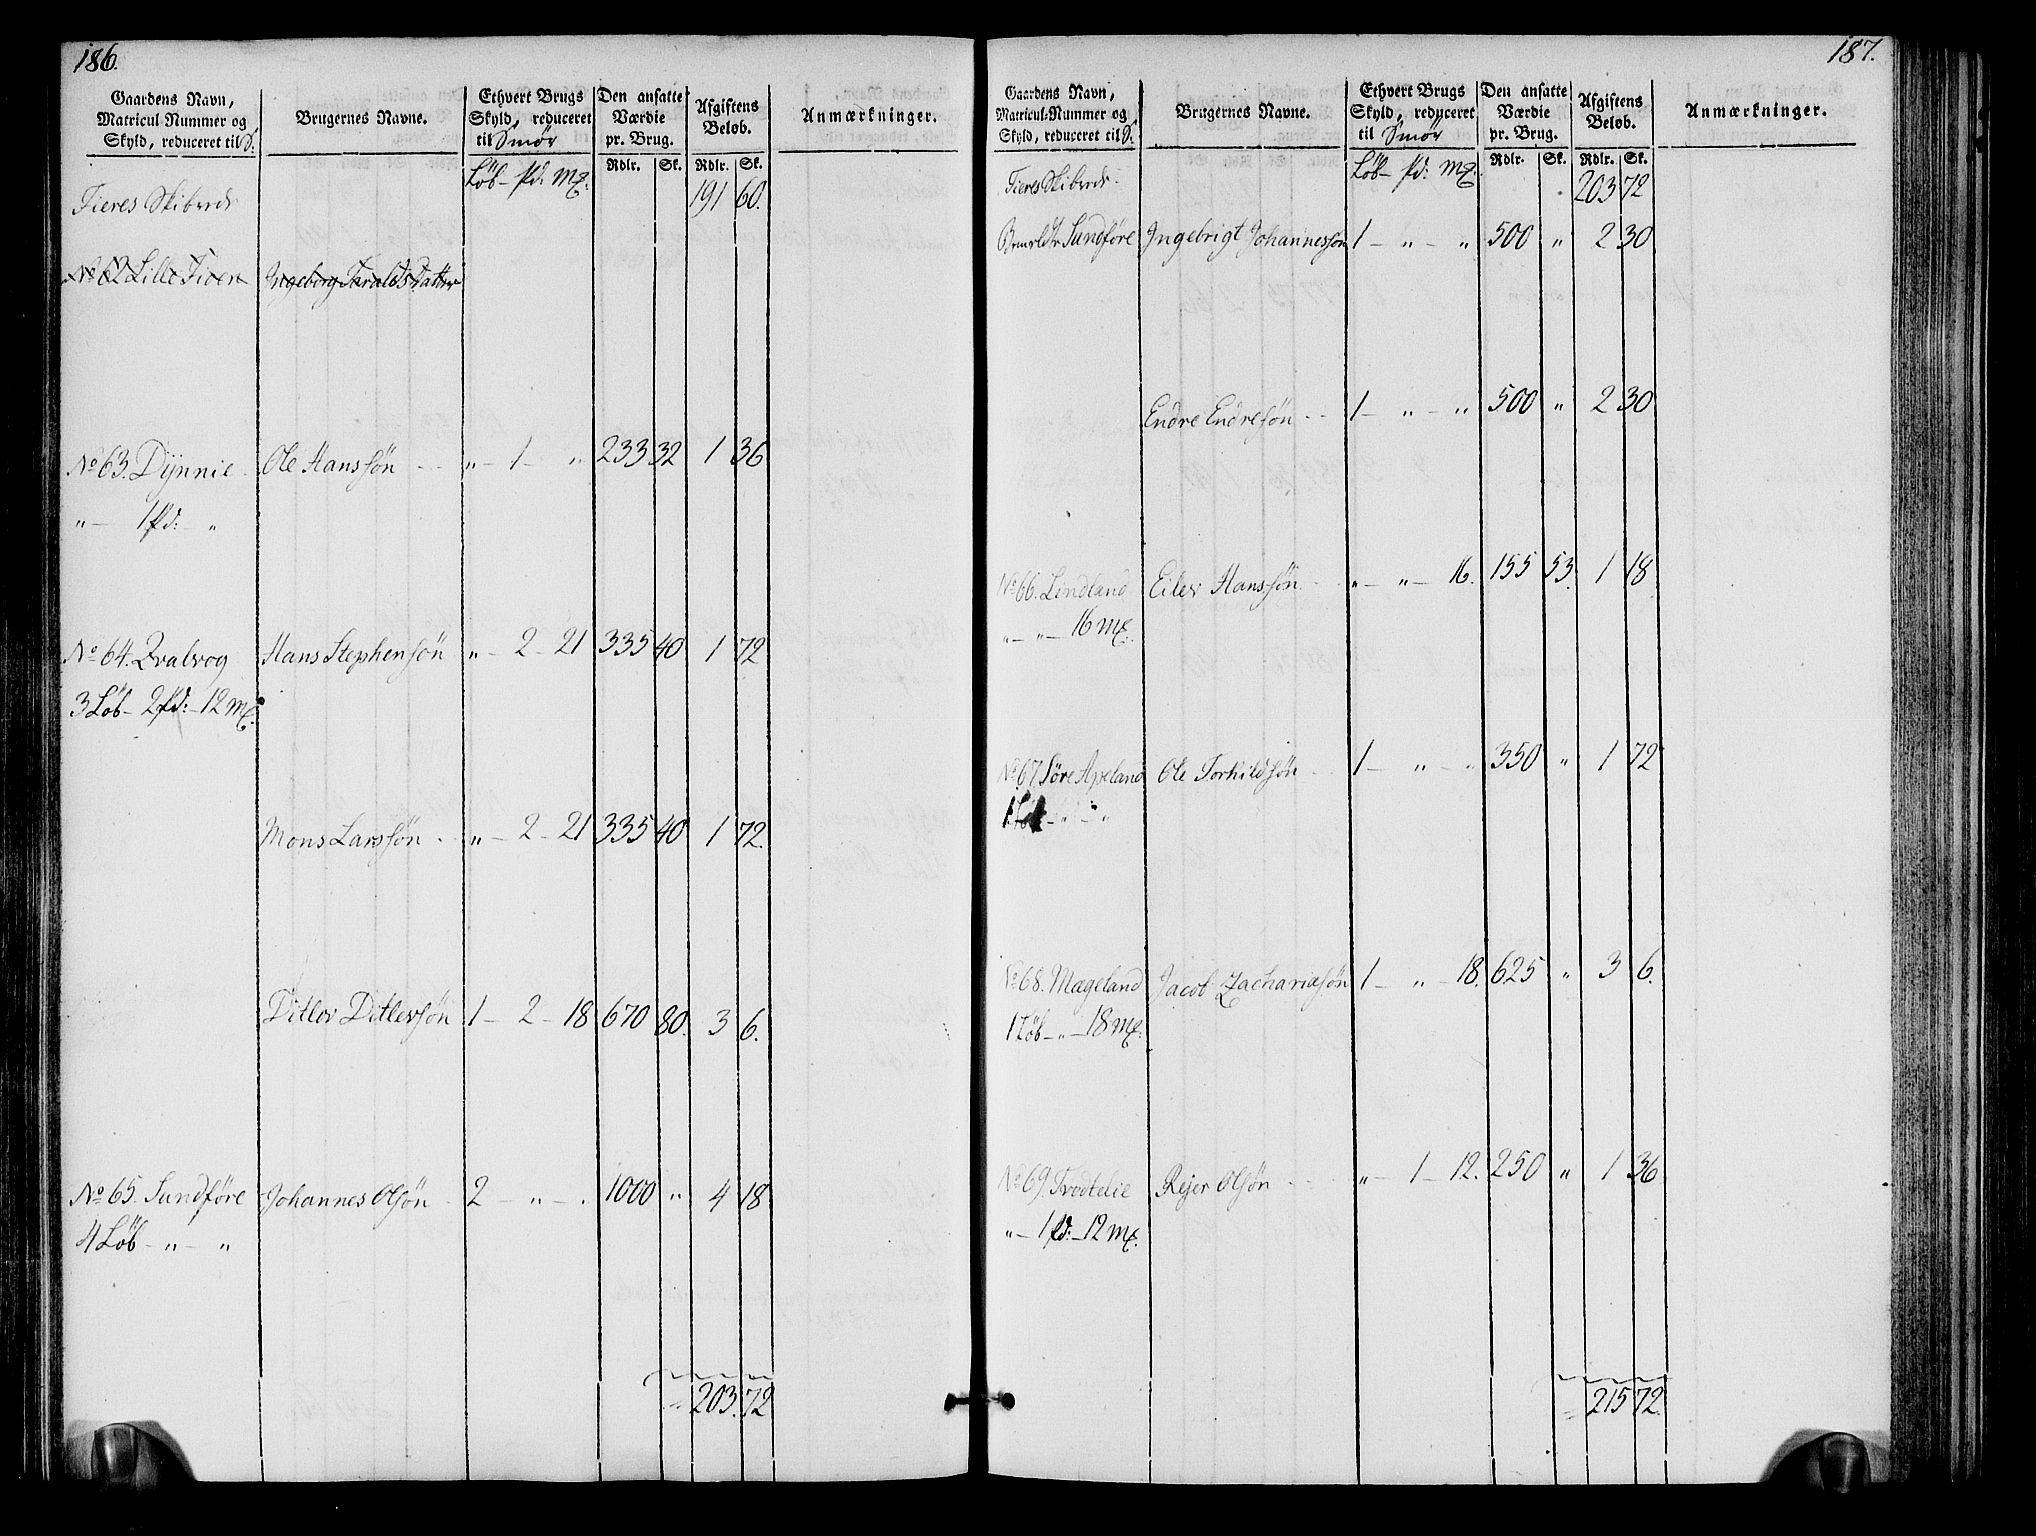 186.
Gaardens Navn,
Matricul Nummer og
Skyld, reduceret til S:
Brugernes Navne.
Ethvert Brugs
Skyld, reduceret
til Smør
Den ansatte
Værdie
pr. Brug.
Afgiftens
Beløb.
Anmærkninger.
Løb - pd: Mk:
Rdlr. Sk. Rdlr. Sk.
Fieres Skibrede 191 60.
No 62 Lille Fioen Ingeborg Taralds Datter
No 63. Dÿnnie Ole Hanssøn - - „ - 1 - „ 233 32 1 36
„ - 1 pd: - „
No 64. Qvalvog Hans Stephensøn „ - 2 - 21 335 40 1 72
3 Løb - 2 pd: - 12 Mk:
Mons Larssøn - „ - 2 - 21 335 40 1 72.
Ditlev Ditlevsøn 1 - 2 - 18 670 80. 3 6.
No 65. Sundføre Johannes Olsøn - 2 - „ - . 1000 „ 4 18
4 Løb - „ - „
203. 72
187.
Gaardens Navn,
Matricul-Nummer og
Skyld, reduceret til S:
Brugernes Navne.
Ethvert Brugs
Skyld, reduceret
til Smør
Den ansatte
Værdie
pr. Brug.
Afgiftens
Beløb.
Anmærkninger.
Løb - pd: Mk:
Rdlr. Sk. Rdlr. Sk.
Fieres Skibrede 203 72
Sundføre Ingebrigt Johannessøn 1 - „ - „ 500 „ 2 30
Endre Endresøn - - 1 - „ - „ 500 „ 2 30
No 66. Lindland Eilev Hanssøn - „ - „ - 16. 155 53. 1 18
„ - „ - 16 Mk:
No 67 Søre Apeland Ole Torkildsøn - - 1 - „ - „ 350 „ 1 72
1 Løb - „ - „
No 68. Mægeland Jacob Zachariæsøn 1 - „ - 18. 625 „ 3 6.
1 Løb - „ - 18 Mk:
No 69. Trodtelie Rejer Olsøn - - - „ - 1 - 12. 250 „ 1 36
„ - 1 pd: - 12 Mk.
215 72.